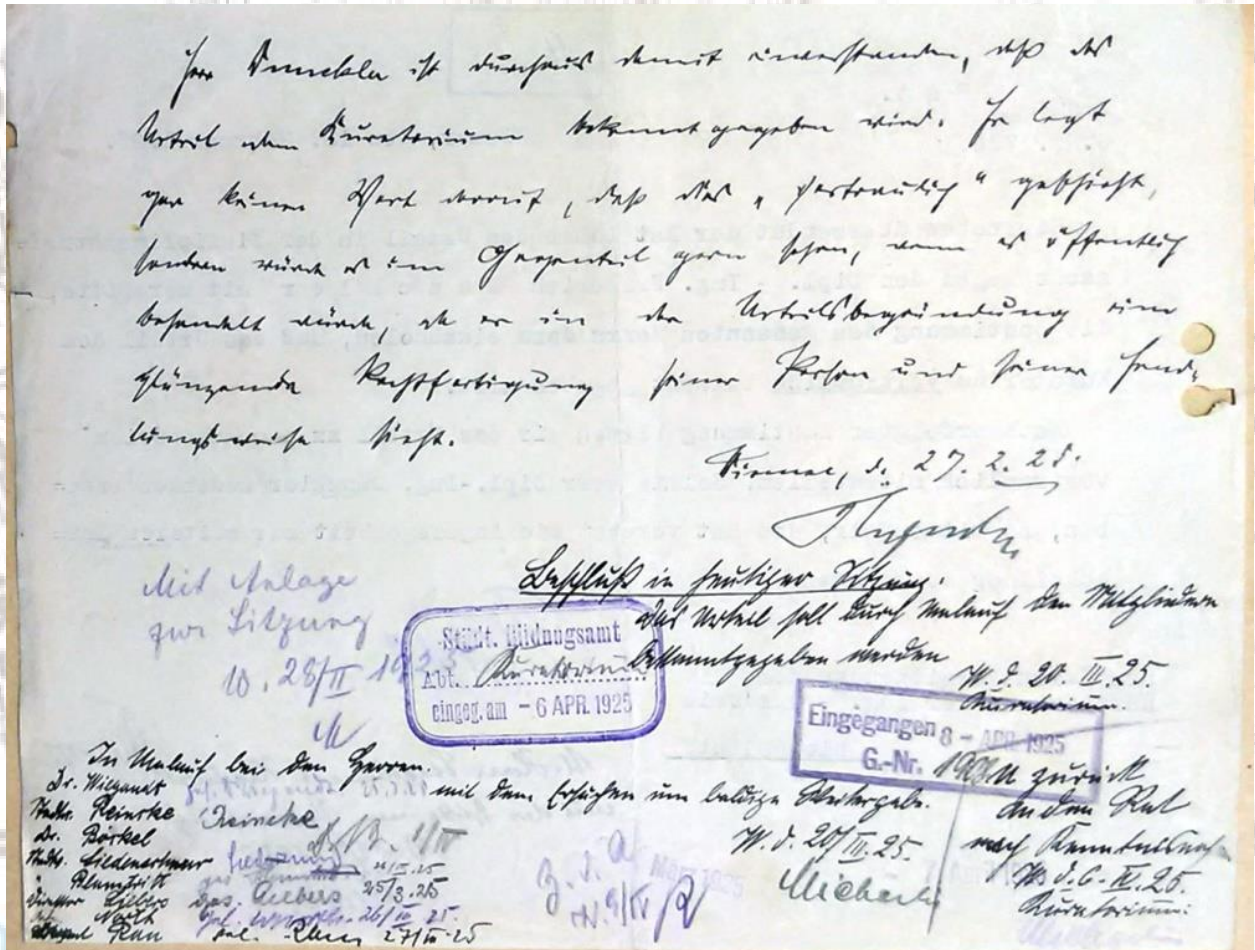 Herr Dunckler ist durchaus damit einverstanden, daß das
Urteil dem Kuratorium bekannt gegeben wird. Er legt
gar keinen Wert darauf, daß dies „vertraulich“ geschieht,
sondern würde es im Gegenteil gern sehen, wenn es öffentlich
behandelt würde, da er in der Urteilsbegründung eine
glänzende Rechtfertigung seiner Person und seiner Hand-
lungsweise sieht.
d. 27. 2. 25.
Beschluß in heutiger Sitzung.
Das Urteil soll durch Umlauf den Mitgliedern
bekanntgegeben werden
W. d. 20. III. 25.
Kuratorium
Mit Anlage
zur Sitzung
28/II 1925
Städt. Bildungsamt
Abt. Kuratorium
eingeg. am - 6 APR. 1925
Eingegangen 8 - APR. 1925
G.-Nr.
In Umlauf bei den Herren.
Dr. Wiegandt
Stadtr. Reincke Reincke
Dr. Börkel
Stadtr.
Direktor Siebers Siebers 25/3.25
26/III 25.
Rau 27/III 25
mit dem Ersuchen um baldige Weitergabe.
W. d. 20/III. 25.
März 1925
zurück
an den Rat
nach Kenntnisnah-
W. d. 6. IV. 25.
Kuratorium: